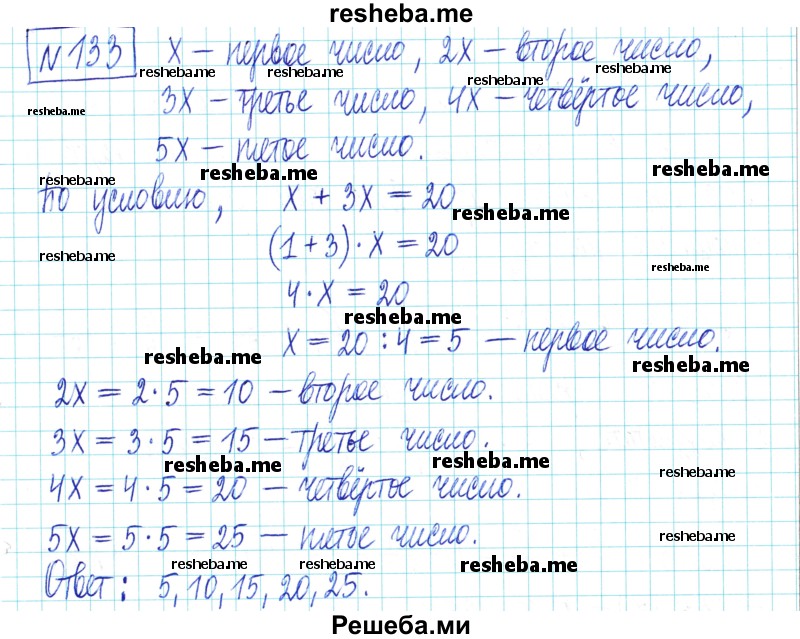 resheba.me
№133 x – первое число, 2x – второе число,
resheba.me resheba.me resheba.me resheba.me
3x – третье число, 4x – четвёртое число,
resheba.me
5x – пятое число.
resheba.me resheba.me resheba.me
По условию, x + 3x = 20
resheba.me
(1+3)·x = 20
resheba.me resheba.me
4·x = 20
resheba.me
x = 20 : 4 = 5 – первое число.
resheba.me resheba.me
2x = 2·5 = 10 – второе число.
3x = 3·5 = 15 – третье число.
resheba.me resheba.me resheba.me
4x = 4·5 = 20 – четвёртое число.
5x = 5·5 = 25 – пятое число.
resheba.me
resheba.me resheba.me resheba.me
Ответ: 5, 10, 15, 20, 25.
Решеба.ми